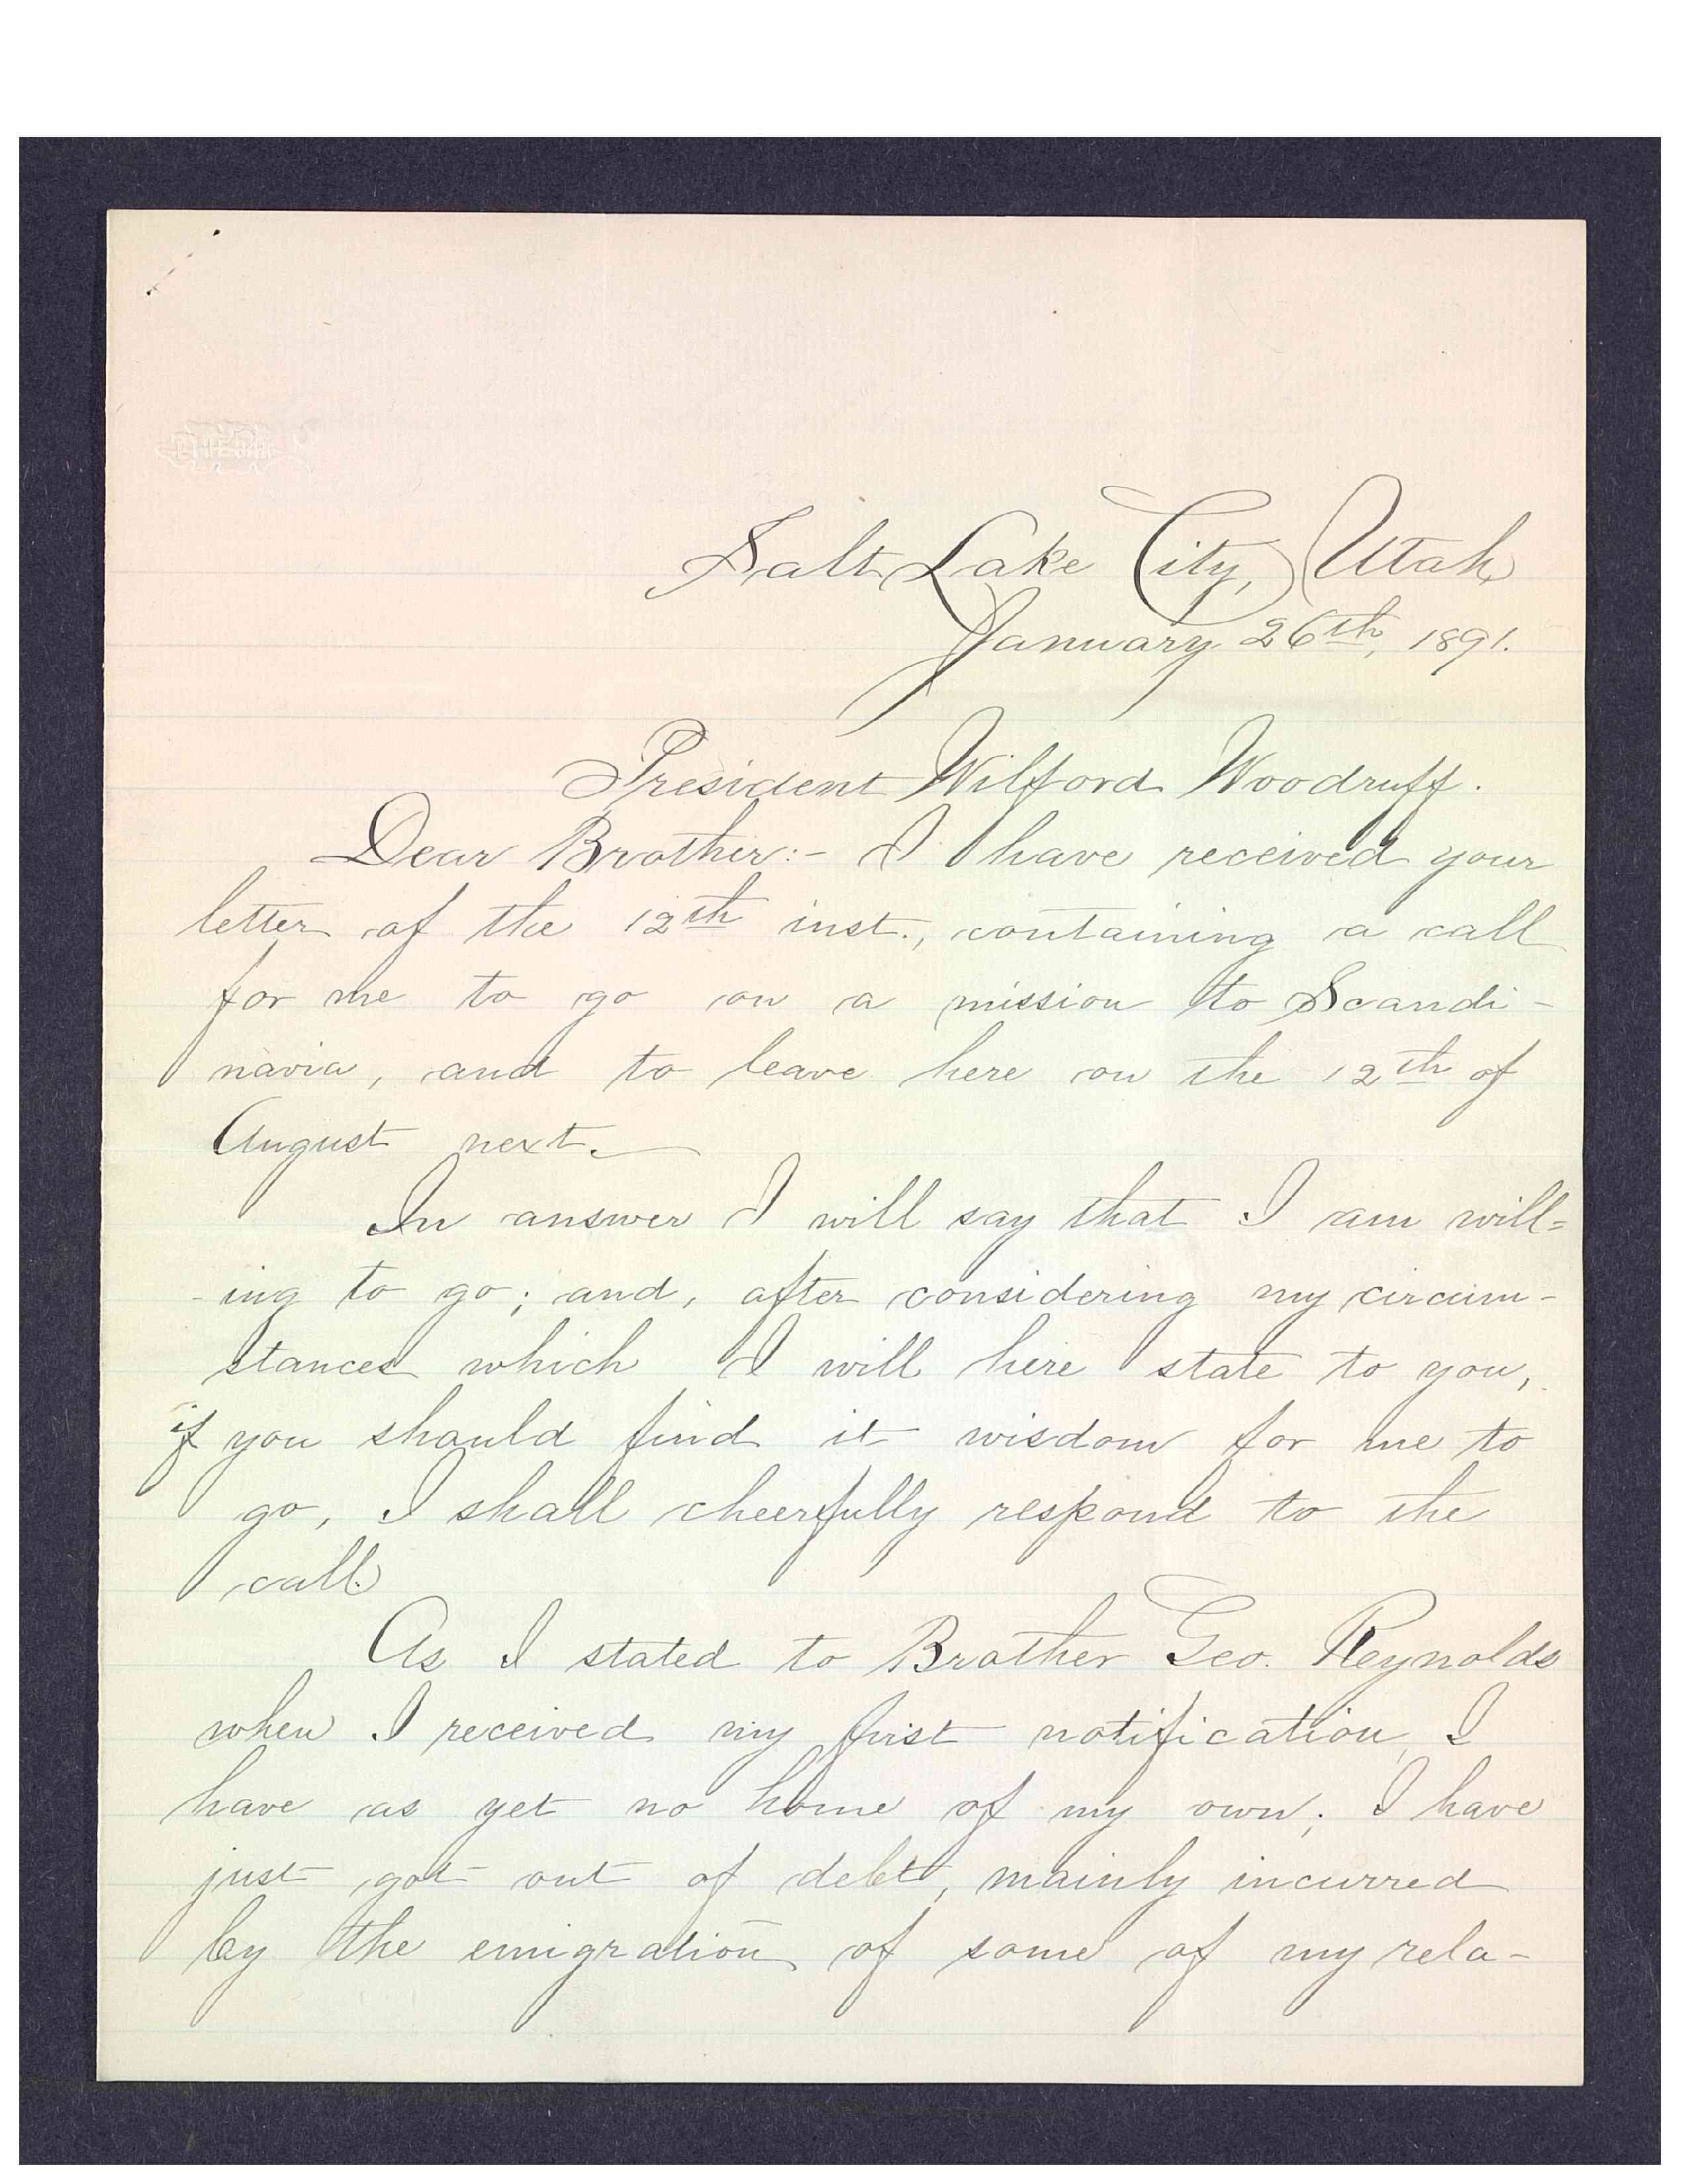 Salt Lake City, Utah
January 26th, 1891.
President Wilford Woodruff.
Dear Brother:- I have received your
letter of the 12th inst., containing a call
for me to go on a mission to Scandi-
navia, and to leave here on the 12th of
August next.
In answer I will say that I am will=
-ing to go; and, after considering my circum-
stances which I will here state to you,
if you should find it wisdom for me to
go, I shall cheerfully respond to the
call.
As I stated to Brother Geo. Reynolds
when I received my first notification, I
have as yet no home of my own; I have
just got out of debt, mainly incurred
by the emigration of some of my rela-